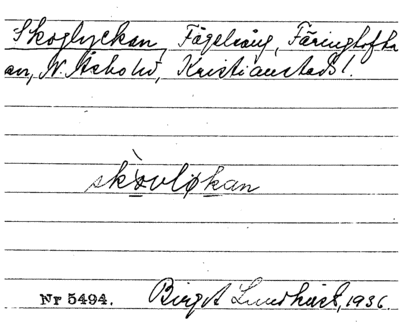 Skoglyckan, Fågelsång, Färingtofta
an, N. Åsbohd, Kristianstads l.
skòvlykan
Nr 5494. Birgit Lundkvist, 1936.